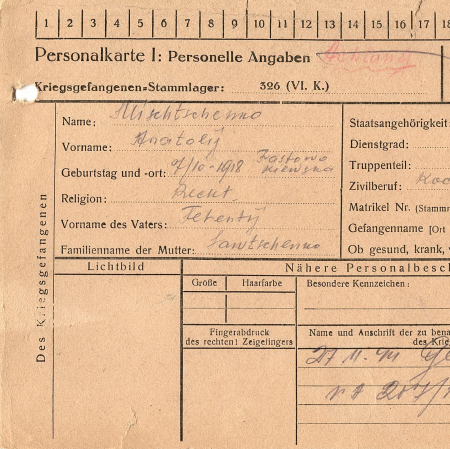 1 2 3 4 5 6 7 8 9 10 11 12 13 14 15 16 17 18
Personalkarte I: Personelle Angaben Achtung
Kriegsgefangenen-Stammlager: 326 (VI. K.)
Des Kriegsgefangenen
Name: Mischtschenko
Vorname: Anatolij
Geburtstag und -ort: 7/10-1918 Kastowo Kiewska
Religion:
Vorname des Vaters:
Familienname der Mutter: Sawtschenko
Staatsangehörigkeit:
Dienstgrad:
Truppenteil:
Zivilberuf:
Matrikel Nr. (Stamm
Gefangenname [Ort
Ob gesund, krank, v
Lichtbild
Nähere Personalbesch
Größe Haarfarbe
Besondere Kennzeichen:
Fingerabdruck
des rechten! Zeigefingers
Name und Anschrift der zu bena
des Krie
27.11.44